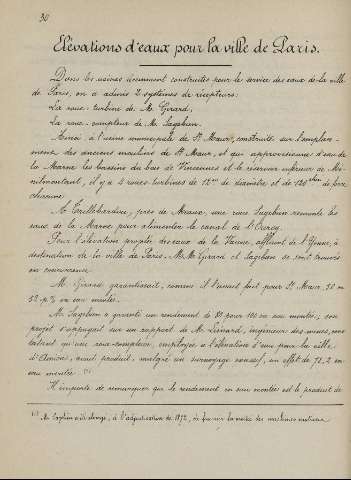 30
Élévations d'eaux pour la ville de Paris.
Dans les usines récemment construites pour le service des eaux de la ville
de Paris, on a admis 2 systèmes de récepteurs:
La roue-turbine de M. Girard,
La roue-compteur de M. Sagebien.
Ainsi à l'usine municipale de St Maur, construite sur l'emplace-
ment des anciens moulins de St Maur, et qui approvisionne d'eau de
la Marne les bassins du bois de Vincennes et le réservoir inférieur de Mé-
nilmontant, il y a 4 roues turbines de 12m de diamètre et de 120 chx de force
chacune.
A Trilbardou, près de Meaux, une roue Sagebien remonte les
eaux de la Marne pour alimenter le canal de l'Ourcq.
Pour l'élévation projetée des eaux de la Vanne, affluent de l'Yonne, à
destination de la ville de Paris, MM. Girard et Sagebien se sont trouvés
en concurrence.
M. Girard garantissait, comme il l'avait fait pour St Maur, 50 à
52 p% en eau montée.
M. Sagebien a garanti un rendement de 60 pour 100 en eau montée; son
projet s'appuyait sur un rapport de M. ingénieur des mines, cons-
tatant qu'une roue-compteur, employée à l'élévation d'eau pour la ville
d'Amiens, avait produit, malgré un un effet de 72,2 en
eau montée. (1)
Il importe de remarquer que le rendement en eau montée est le produit de
(1) M. Sagebien a été chargé, à l'adjudication de 1872, de fournir la des machines